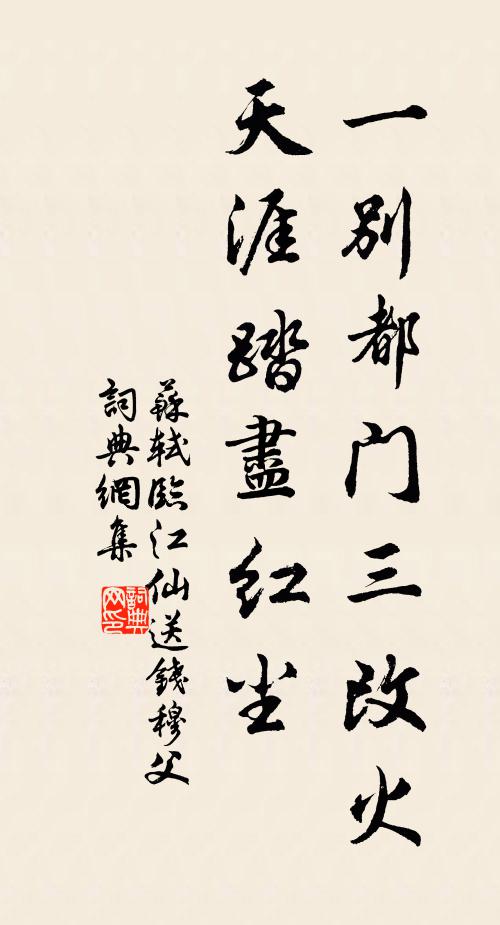 一别都门三改火
天涯踏盡红尘
蘇軾臨江仙送錢穆父
詞典網集
詞典
网印